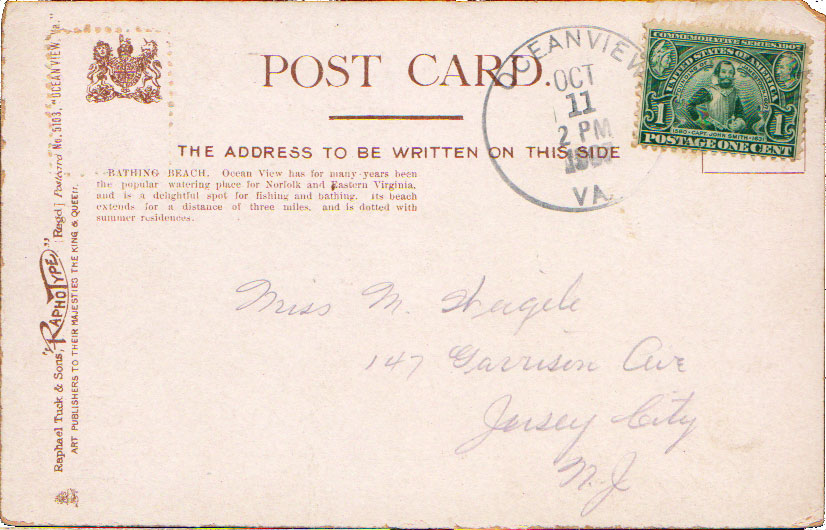 POST CARD.
THE ADDRESS TO BE WRITTEN ON THIS SIDE
BATHING BEACH. Ocean View has for many years been
the popular watering place for Norfolk and Eastern Virginia,
and is a delightful spot for fishing and bathing. Its beach
extends for a distance of three miles, and is dotted with
summer residences.
OCEANVIEW
OCT
11
2 PM
VA.
COMMEMORATIVE SERIES, 1907
UNITED STATES OF AMERICA
FOUNDING OF
1580-CAPT. JOHN SMITH-1631
1 1
POSTAGE ONE CENT
Miss M. Weigele
147 Garrison Ave
Jersey City
N.J
Raphael Tuck & Sons' "RAPHOTYPE" [Regd] Postcard No. 5103. "OCEANVIEW, Va."
ART PUBLISHERS TO THEIR MAJESTIES THE KING & QUEEN.